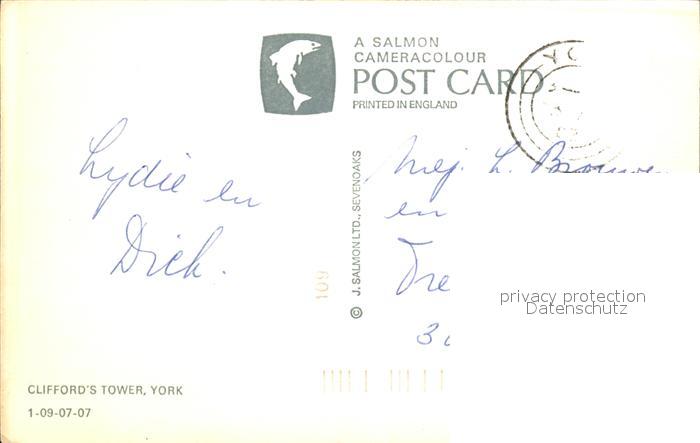 A SALMON
CAMERACOLOUR
POST CARD
PRINTED IN ENGLAND
Lydie en
Dick.
© J. SALMON LTD., SEVENOAKS
109
Mej. L.
en
privacy protection
Datenschutz
CLIFFORD'S TOWER, YORK
1-09-07-07